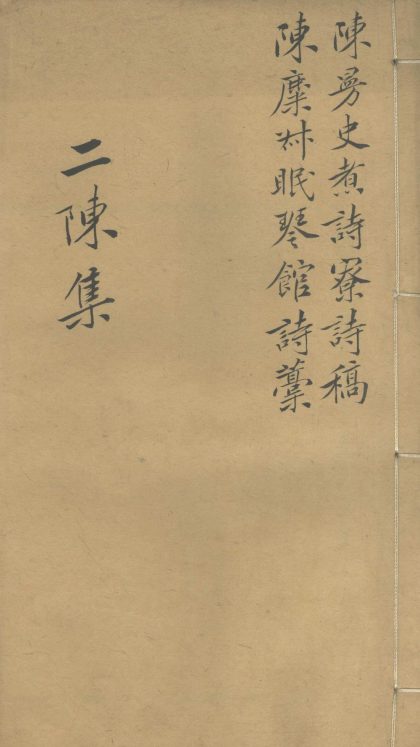 陳曼史煮詩寮詩稿
陳糜叔眠琴館詩藁
二陳集